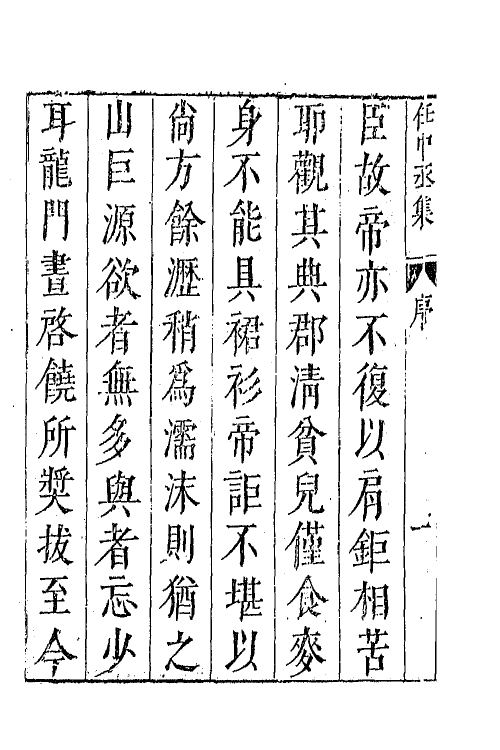 任中丞集 序 一
臣故帝亦不復以屑鉅相苦
耶觀其典郡清貧兒僅食麥
身不能具裙衫帝詎不堪以
尚方餘瀝稍為濡沬則猶之
山巨源欲者無多與者忘少
耳龍門晝啓饒所奬拔至今